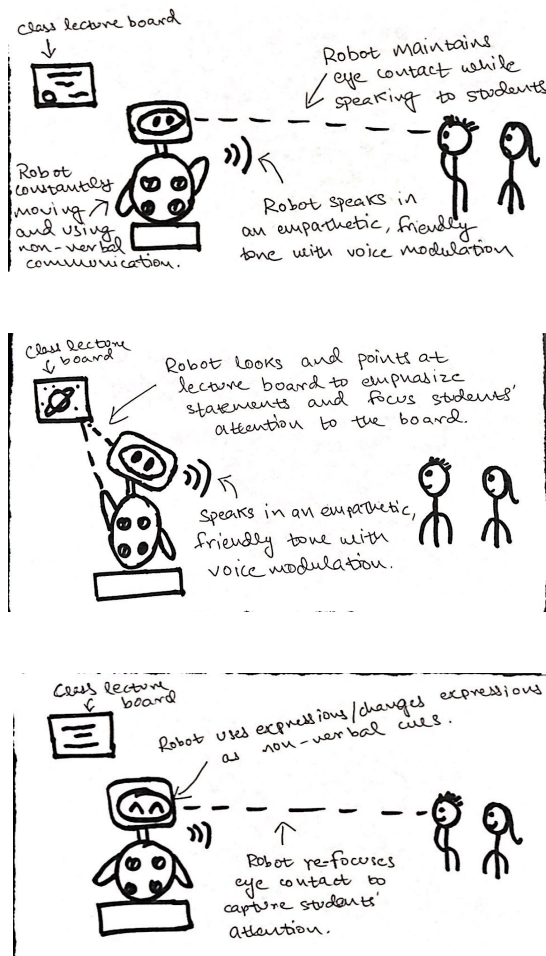 Class lecture board
Robot maintains
eye contact while
speaking to students
Robot
constantly
moving
and using
non-verbal
communication.
Robot speaks in
an empathetic, friendly
tone with voice modulation
Class lecture
board
Robot looks and points at
lecture board to emphasize
statements and focus students'
attention to the board.
Speaks in an empathetic,
friendly tone with
voice modulation.
Class lecture
board
Robot uses expressions/changes expressions
as non-verbal cues.
Robot re-focuses
eye contact to
capture students'
attention.